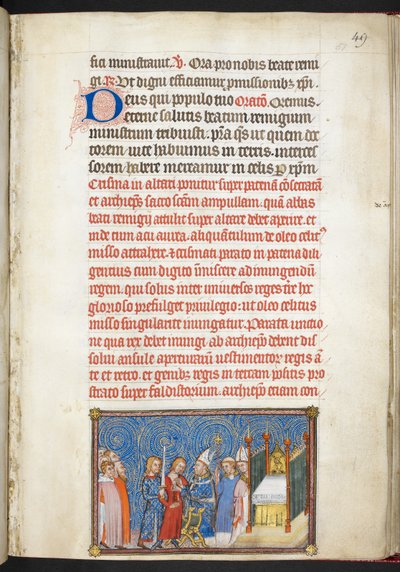 49
fici ministrauit. ℣. Ora pro nobis beate remi
gi. ℟. Ut digni efficiamur pmissionibꝫ xpi.
Deus qui populo tuo Oratō. Oremus.
eterne salutis beatum remigium
ministrum tribuisti. p̄sta q̄s ut quem doc
torem uite habuimus in terris. interces
sorem habere mereamur in celis. P xp̄m
Crisma in altari ponitur super patenā cōsecratā
et archiep̄s sacrosc̄am ampullam. quā abbas
beati remigij attulit super altare debet aperire. et
inde cum acu aurea. aliquantulum de oleo celitꝰ
misso attrahere. ⁊ crismati parato in patena dili
gentius cum digito īmiscere ad inungendū
regem. qui solus inter uniuersos reges t̄re hoc
glorioso prefulget priuilegio: ut oleo celitus
misso singulariter inungatur. Parata unctio
ne qua rex debet inungi. ab archiep̄o debent dis
solui ansule aperturarum uestimentoꝝ regis ā
te et retro. et genibꝫ regis in terram positis pro
strato super faldistorium. archiep̄o etiam con